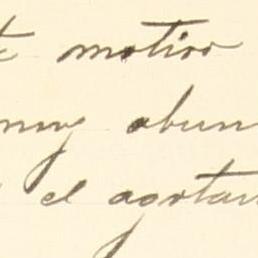 motivo
muy abun
el agotam